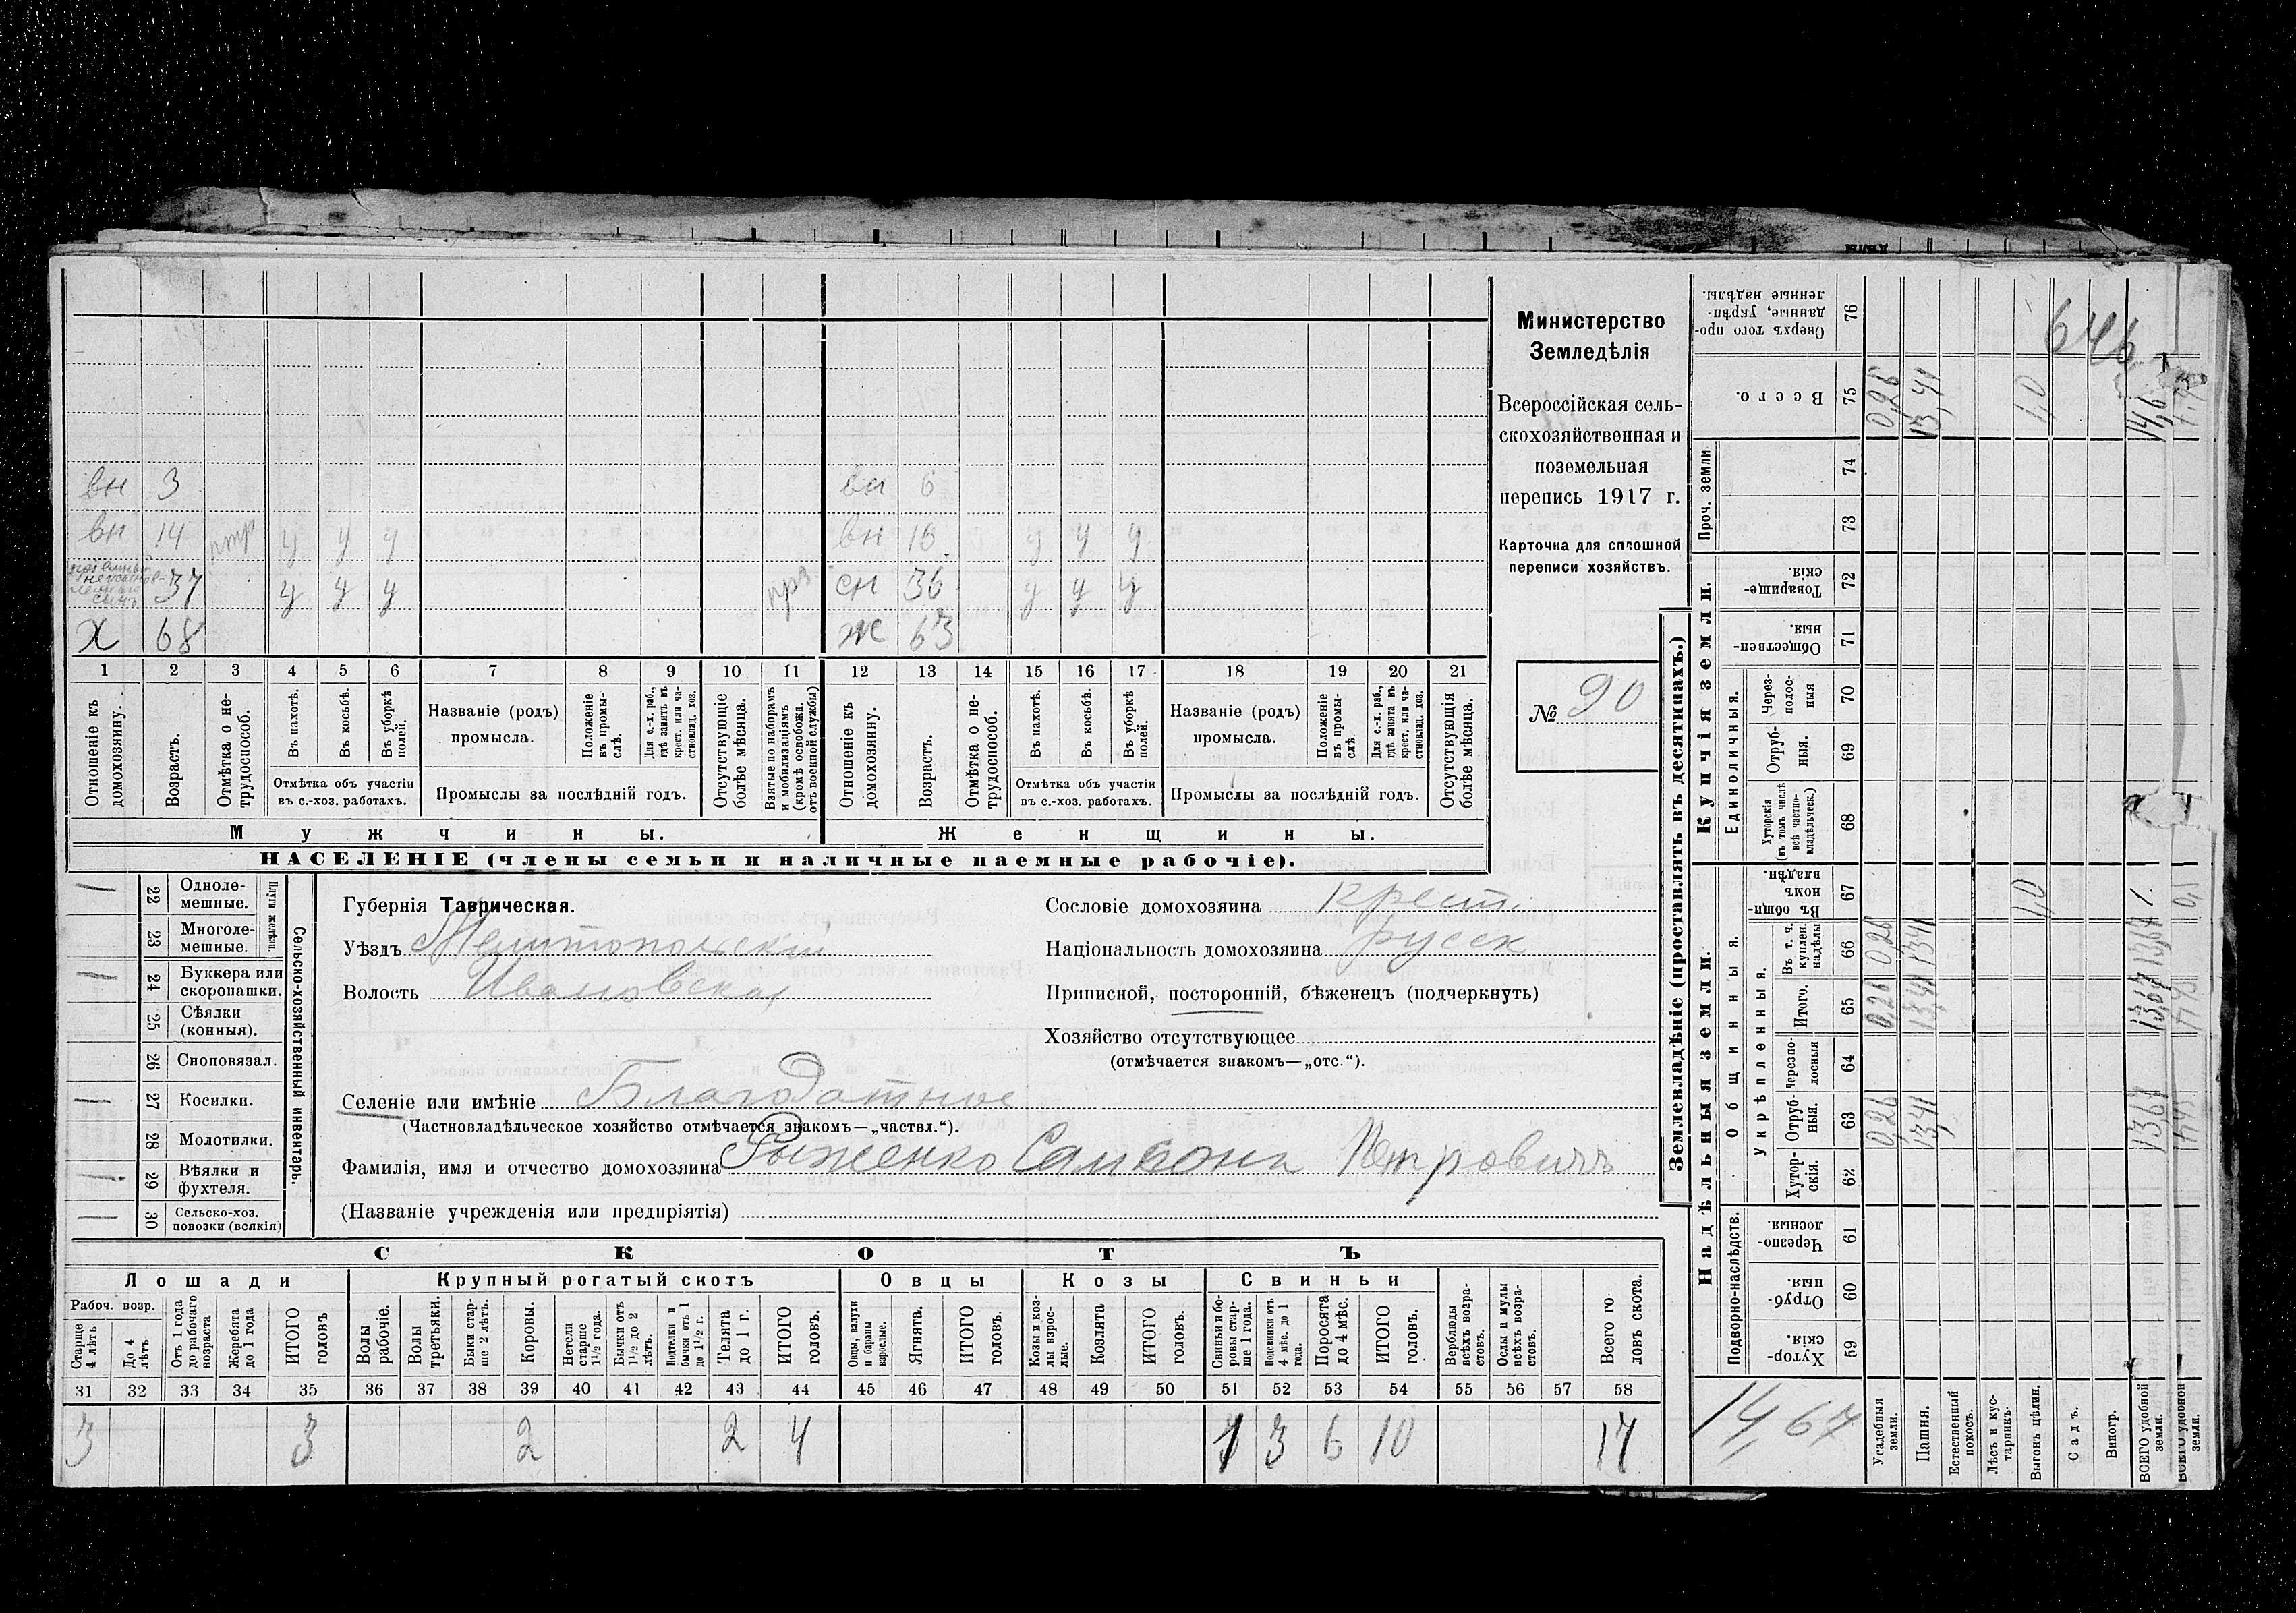 Министерство
Земледѣлія
Всероссійская сель-
скохозяйственная и
поземельная
перепись 1917 г.
Карточка для сплошной
переписи хозяйствъ.
№ 90
646
вн 3
вн 6
вн 14 у у у
вн 16 у у у
37 у у у
сн 36 у у у
х 68
ж 63
1 2 3 4 5 6 7 8 9 10 11 12 13 14 15 16 17 18 19 20 21
Отношеніе къ домохозяину.
Возрастъ.
Отмѣтка о не-
трудоспособ.
Въ пахотѣ.
Въ косьбѣ.
Въ уборкѣ
полей.
Отмѣтка объ участіи
въ с.-хоз. работахъ.
Названіе (родъ)
промысла.
Положеніе
въ промы-
слѣ.
Для с.-х. раб.,
гдѣ занятъ въ
крест. или ча-
стновлад. хоз.
Промыслы за послѣдній годъ.
Отсутствующіе
болѣе мѣсяца.
Взятые по наборамъ
и мобилизаціямъ
(кромѣ освобожд.
отъ военной службы)
Отношеніе къ
домохозяину.
Возрастъ.
Отмѣтка о не-
трудоспособ.
Въ пахотѣ.
Въ косьбѣ.
Въ уборкѣ
полей.
Отмѣтка объ участіи
въ с.-хоз. работахъ.
Названіе (родъ)
промысла.
Положеніе
въ промы-
слѣ.
Для с.-х. раб.,
гдѣ занята въ
крест. или ча-
стновлад. хоз.
Промыслы за послѣдній годъ.
Отсутствующія
болѣе мѣсяца.
Мужчины.
Женщины.
НАСЕЛЕНІЕ (члены семьи и наличные наемные рабочіе).
Сельско-хозяйственный инвентарь.
Плуги желѣзн.
22 Одноле-
мешные.
23 Многоле-
мешные.
24 Буккера или
скоропашки.
25 Сѣялки
(конныя).
26 Сноповязал.
27 Косилки.
28 Молотилки.
29 Вѣялки и
фухтеля.
30 Сельско-хоз.
повозки (всякія)
Губернія Таврическая.
Уѣздъ Мелитопольскій
Волость Ивановская
Сословіе домохозяина крест.
Національность домохозяина русск
Приписной, посторонній, бѣженецъ (подчеркнуть)
Хозяйство отсутствующее
(отмѣчается знакомъ—„отс.“).
Селеніе или имѣніе Благодатное
(Частновладѣльческое хозяйство отмѣчается знакомъ—„частвл.“).
Фамилія, имя и отчество домохозяина Рыженко Самсонъ Петровичъ
(Названіе учрежденія или предпріятія)
СКОТЪ
Лошади
Крупный рогатый скотъ
Овцы
Козы
Свиньи
Рабоч. возр.
Старше
4 лѣтъ
До 4
лѣтъ
Отъ 1 года
до рабочаго
возраста
Жеребята
до 1 года
ИТОГО
головъ
Волы
рабочіе.
Волы
третьяки.
Быки стар-
ше 2 лѣтъ.
Коровы.
Нетели
старше
1½ года.
Бычки отъ
1½ до 2
лѣтъ.
Подтелки и
бычки отъ 1
до 1½ г.
Телята
до 1 г.
ИТОГО
головъ.
Овцы, валухи
и бараны
взрослые.
Ягнята.
ИТОГО
головъ.
Козы и коз-
лы взрос-
лые.
Козлята
ИТОГО
головъ.
Свиньи и бо-
ровы стар-
ше 1 года.
Подсвинки отъ
4 мѣс. до 1
года.
Поросята
до 4 мѣс.
ИТОГО
головъ.
Верблюды
всѣхъ возра-
стовъ.
Ослы и мулы
всѣхъ возра-
стовъ.
Всего го-
ловъ скота.
31 32 33 34 35 36 37 38 39 40 41 42 43 44 45 46 47 48 49 50 51 52 53 54 55 56 57 58
3 3 2 2 4 1 3 6 10 17
Землевладѣніе (проставлять въ десятинахъ.)
Надѣльныя земли.
Купчія земли.
Проч. земли
Подворно-наслѣдств.
Общинныя.
Укрѣпленныя.
Единоличныя.
Сверхъ того про-
данные, укрѣп-
ленные надѣлы. 76
Всего. 75 0,26 13,41 1,0
74
73
Товарище-
скія. 72
Обществен-
ныя. 71
Через-
полос-
ныя 70
Отруб-
ныя. 69
Хуторскія
(въ томъ числѣ
всѣ частно-
владѣльческ.) 68
Въ общин-
номъ
владѣн. 67 1,0
Въ т. ч.
куплен.
надѣлы 66 0,26 13,41 13,67
Итого. 65 0,26 13,41 13,67
Черезпо-
лосныя 64
Отруб-
ныя. 63 0,26 13,41 13,67
Хутор-
скія. 62
Черезпо-
лосныя 61
Отруб-
ныя. 60
Хутор-
скія. 59
14,67
Усадебныя
земли.
Пашня.
Естественный
покосъ.
Лѣсъ и кус-
тарникъ.
Выгонъ цѣлин.
Садъ.
Виногр.
ВСЕГО удобной
земли.
ВСЕГО удобной
земли.